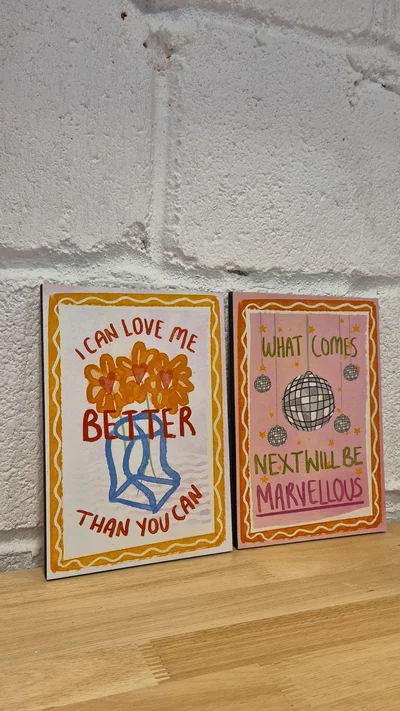 I CAN LOVE ME
BETTER
THAN YOU CAN
WHAT COMES
NEXT WILL BE
MARVELLOUS